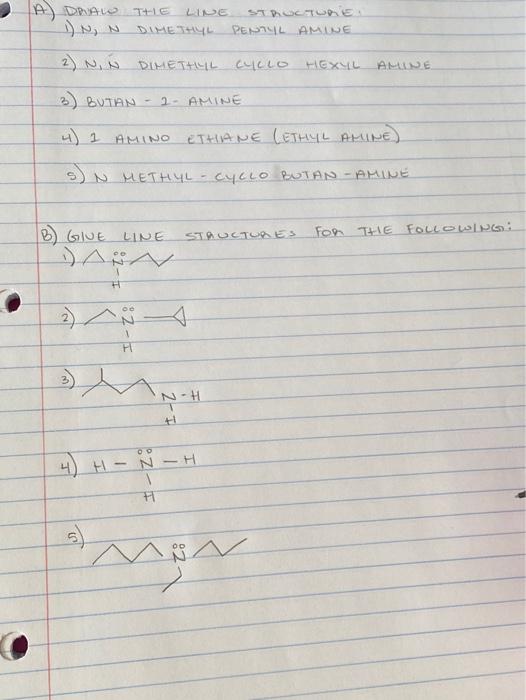 A) DRAW THE LINE STRUCTURE:
1) N, N DIMETHYL PENTYL AMINE
2) N, N DIMETHYL CYCLO HEXYL AMINE
3) BUTAN - 2 - AMINE
4) 1 AMINO ETHANE (ETHYL AMINE)
5) N METHYL - CYCLO BUTAN - AMINE
B) GIVE LINE STRUCTURES FOR THE FOLLOWING:
1) N
H
2) N
H
3)
N - H
H
4) H - N - H
H
5)
N